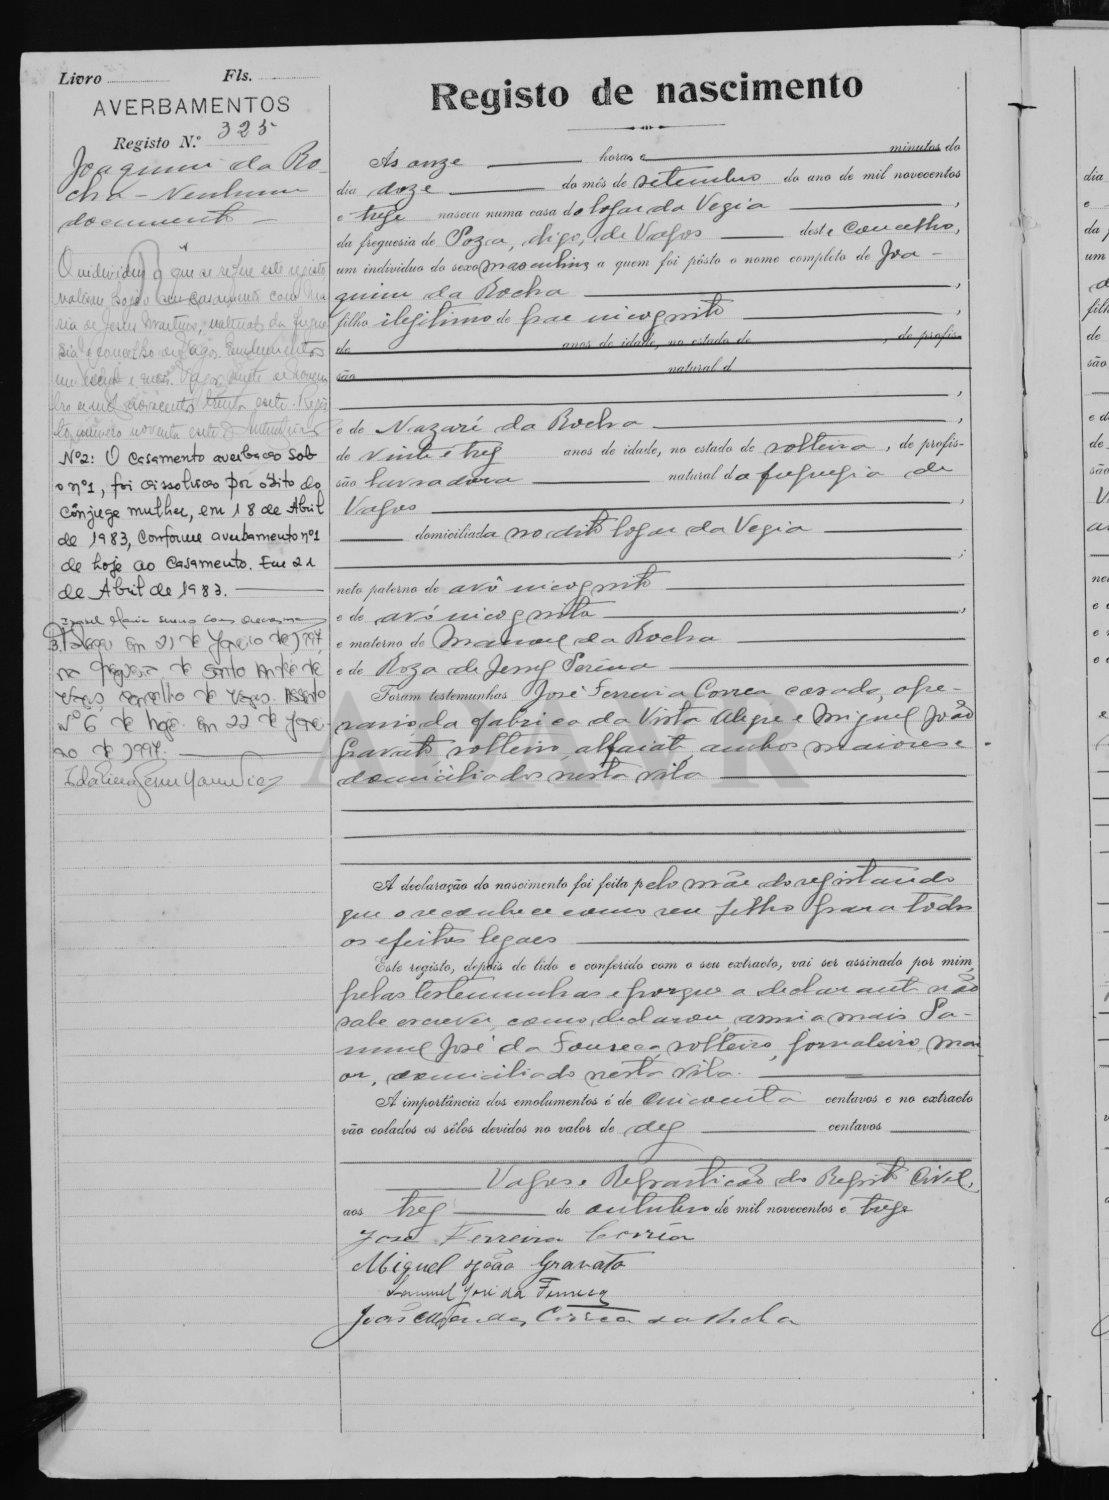 Livro Fls.
AVERBAMENTOS
Registo N.º 325
Joaquim da Ro-
cha – Nenhum
documento –
O individuo a que se refere este registo
realisou hoje o seu casamento com Ma
ria de Jesus Martins, natural da fregue
sia e concelho de Vagos.
Vagos, sete de
mil novecentos trinta e sete. Regis
to número noventa e sete
Nº2: O casamento averbado sob
o nº1, foi dissolvido por óbito do
cônjuge mulher, em 18 de Abril
de 1983, conforme averbamento nº1
de hoje ao casamento. Em 21
de Abril de 1983.
Isabel Maria
3. Faleceu em 21 de Janeiro de 1997,
na freguesia de Santo André de
Vagos, concelho de Vagos. Assento
Nº 6 de hoje. Em 22 de Janei-
ro de 1997.
Registo de nascimento
Às onze horas e minutos do
dia doze do mês de setembro do ano de mil novecentos
e treze nasceu numa casa do logar da Vegia,
da freguesia de Soza, digo, de Vagos deste concelho,
um individuo do sexo masculino a quem foi pôsto o nome completo de Joa-
quim da Rocha,
filho ilegitimo de pae incognito,
de anos de idade, no estado de, de profis-
são natural d
,
e de Nazaré da Rocha,
de vinte e trez anos de idade, no estado de solteira, de profis-
são lavradora natural da freguezia de
Vagos,
domiciliada no dito logar da Vegia
;
neto paterno de avô incognito
e de avó incognita,
e materno de Manoel da Rocha
e de Roza de Jesus Serena
Foram testemunhas José Ferreira Correa casado, ope-
rario da fabrica da Vista Alegre e Miguel João
Gravato, solteiro, alfaiate, ambos maiores e
domiciliados nesta vila
A declaração do nascimento foi feita pelo mãe do registando
que o reconhece como seu filho para todos
os efeitos legaes
Este registo, depois de lido e conferido com o seu extracto, vai ser assinado por mim,
pelas testemunhas e porque a declarante não
sabe escrever, como declarou, assina mais Sa-
muel José da Fonseca, solteiro, jornaleiro, mai
or, domiciliado nesta vila.
A importância dos emolumentos é de cincoenta centavos e no extracto
vão colados os sêlos devidos no valor de dez centavos
Vagos e Repartição do Registo Civil,
aos trez de outubro de mil novecentos e treze
José Ferreira Corrêa
Miguel João Gravato
Samuel José da Fonseca
João Mendes Correa da Rocha
ADAVR